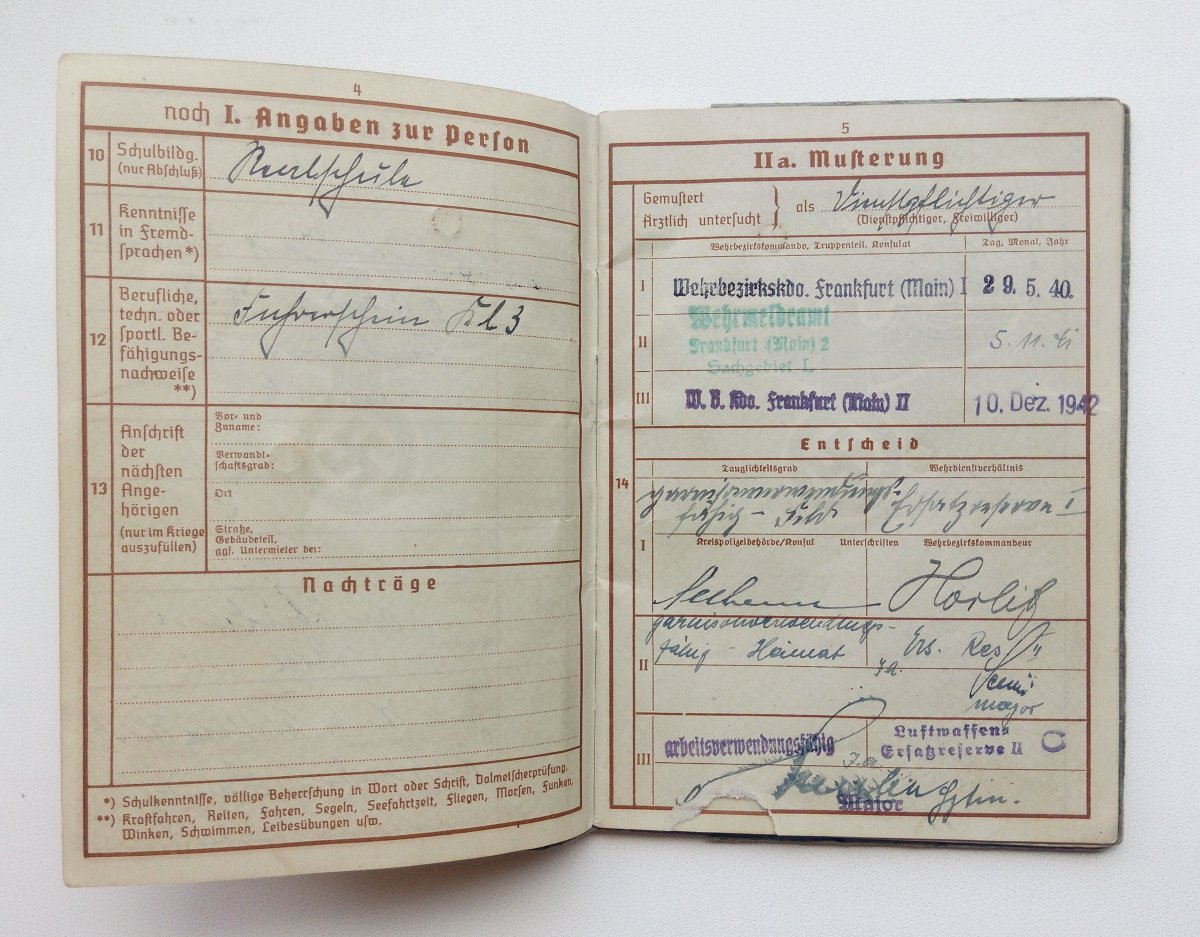 4
noch I. Angaben zur Person
10 Schulbildg. (nur Abschluß)
Realschule
11 Kenntnisse in Fremd-
sprachen*)
12 Berufliche,
techn. oder
sportl. Be-
fähigungs-
nachweise
**)
Führerschein Kl 3
13 Anschrift
der
nächsten
Ange-
hörigen
(nur im Kriege
auszufüllen)
Vor- und
Zuname:
Verwandt-
schaftsgrad:
Ort
Straße,
Gebäudeteil,
ggf. Untermieter bei:
Nachträge
*) Schulkenntnisse, völlige Beherrschung in Wort oder Schrift, Dolmetscherprüfung.
**) Kraftfahren, Reiten, Fahren, Segeln, Seefahrtzeit, Fliegen, Morsen, Funken,
Winken, Schwimmen, Leibesübungen usw.
5
IIa. Musterung
Gemustert
Ärztlich untersucht } als Dienstpflichtiger
(Dienstpflichtiger, Freiwilliger)
Wehrbezirkskommando, Truppenteil, Konsulat Tag, Monat, Jahr
I Wehrbezirkskdo. Frankfurt (Main) I 29. 5. 40.
Wehrmeldeamt
II Frankfurt (Main) 2 5. 11. 41
Sachgebiet L
III W. B. Kdo. Frankfurt (Main) II 10. Dez. 1942
Entscheid
14 Tauglichkeitsgrad Wehrdienstverhältnis
garnisonverwendungs-
fähig - Feld Ersatzreserve I
I Kreispolizeibehörde/Konsul Unterschriften Wehrbezirkskommandeur
garnisonverwendungs-
II fähig - Heimat Ers. Res
Major
III arbeitsverwendungsfähig Luftwaffen-
Ersatzreserve II C
Major